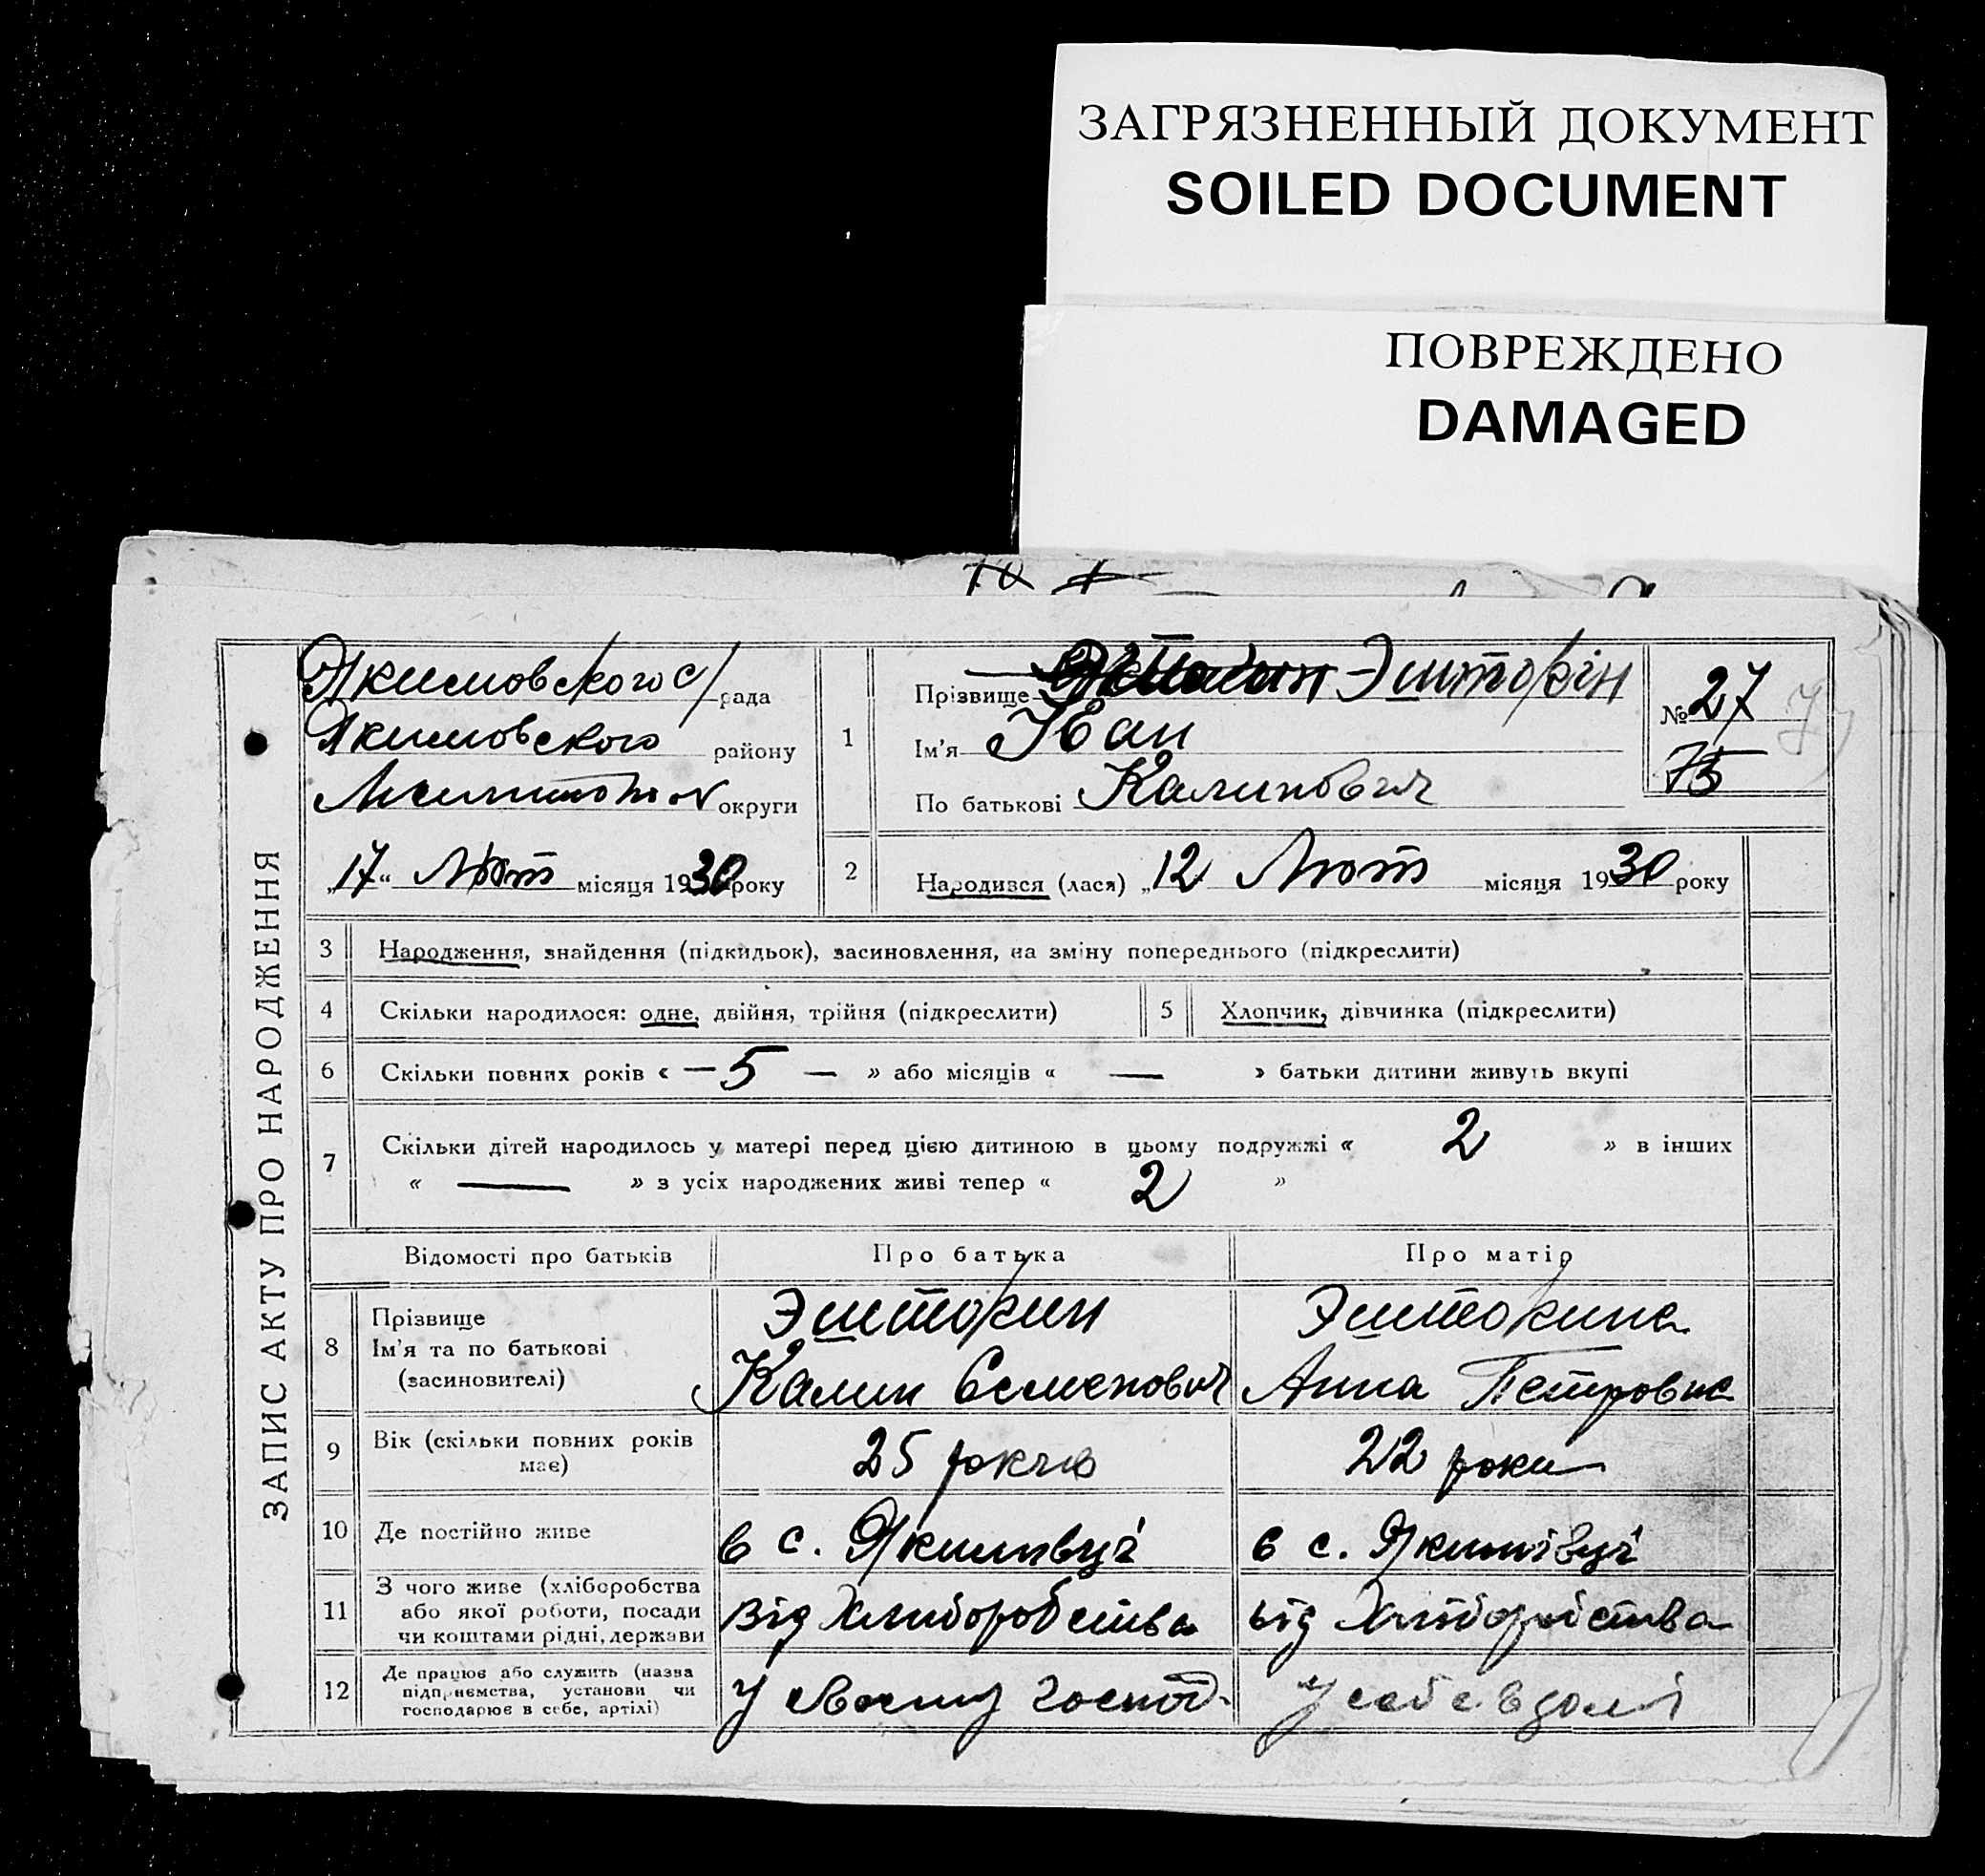 ЗАГРЯЗНЕННЫЙ ДОКУМЕНТ
SOILED DOCUMENT
ПОВРЕЖДЕНО
DAMAGED
ЗАПИС АКТУ ПРО НАРОДЖЕННЯ
Якимовского с/рада
Якимовского району
округи
„17“ Лют місяця 1930 року
1
Прізвище Эшторін
Ім'я Іван
По батькові Калинович
№ 27
75
2 Народився (лася) „12 Лют місяця 1930 року
3 Народження, знайдення (підкидьок), засиновлення, на зміну попереднього (підкреслити)
4 Скільки народилося: одне, двійня, трійня (підкреслити)
5 Хлопчик, дівчинка (підкреслити)
6 Скільки повних років « — 5 — » або місяців « — » батьки дитини живуть вкупі
7 Скільки дітей народилось у матері перед цією дитиною в цьому подружжі « 2 » в інших
« — » з усіх народжених живі тепер « 2 »
Відомості про батьків Про батька Про матір
8 Прізвище
Ім'я та по батькові
(засиновителі)
Эшторин
Калин Семенович
Эшторина
Анна Петровна
9 Вік (скільки повних років
має)
25 років
22 роки
10 Де постійно живе
в с. Якимівці
в с. Якимівці
11 З чого живе (хліборобства
або якої роботи, посади
чи коштами рідні, держави
від Хлиборобства
від Хліборобства
12 Де працює або служить (назва
підприємства, установи чи
господарює в себе, артілі)
У своєму господ.
У себе вдомі